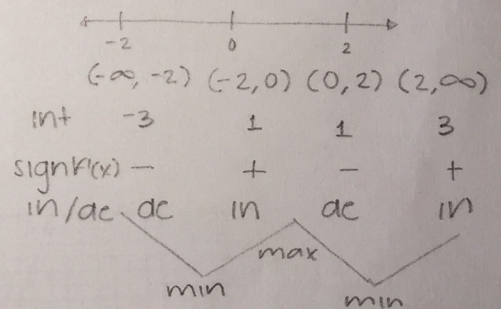 -2 0 2
(-∞, -2) (-2, 0) (0, 2) (2, ∞)
int -3 1 1 3
sign f'(x) - + - +
in/de de in de in
max
min min